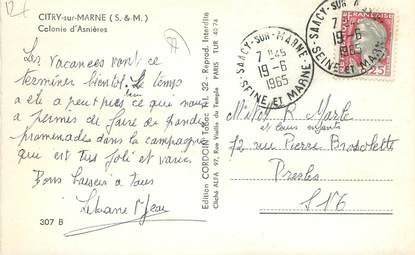 CITRY-sur-MARNE (S.-&-M.)
Colonie d'Asnières
Les vacances vont se
terminer bientôt. Le temps
a été a peut près ce qui nous
a permis de faire de grandes
promenades dans la campagne
qui est très joli et varié.
Bons baisers a tous
307 B
Edition CORDOIN Tabac Tél. 32 - Reprod. Interdite
Cliché ALFA 97, Rue Vieille du Temple PARIS TUR 40 74
SAACY-SUR-MARNE
7 H 45
19-6
1965
SEINE ET MARNE
SAACY-SUR-MARNE
7 H 45
19-6
1965
SEINE ET MARNE
FRANÇAISE
0,25
et leurs enfants
72 rue Pierre Brossolette
Presles